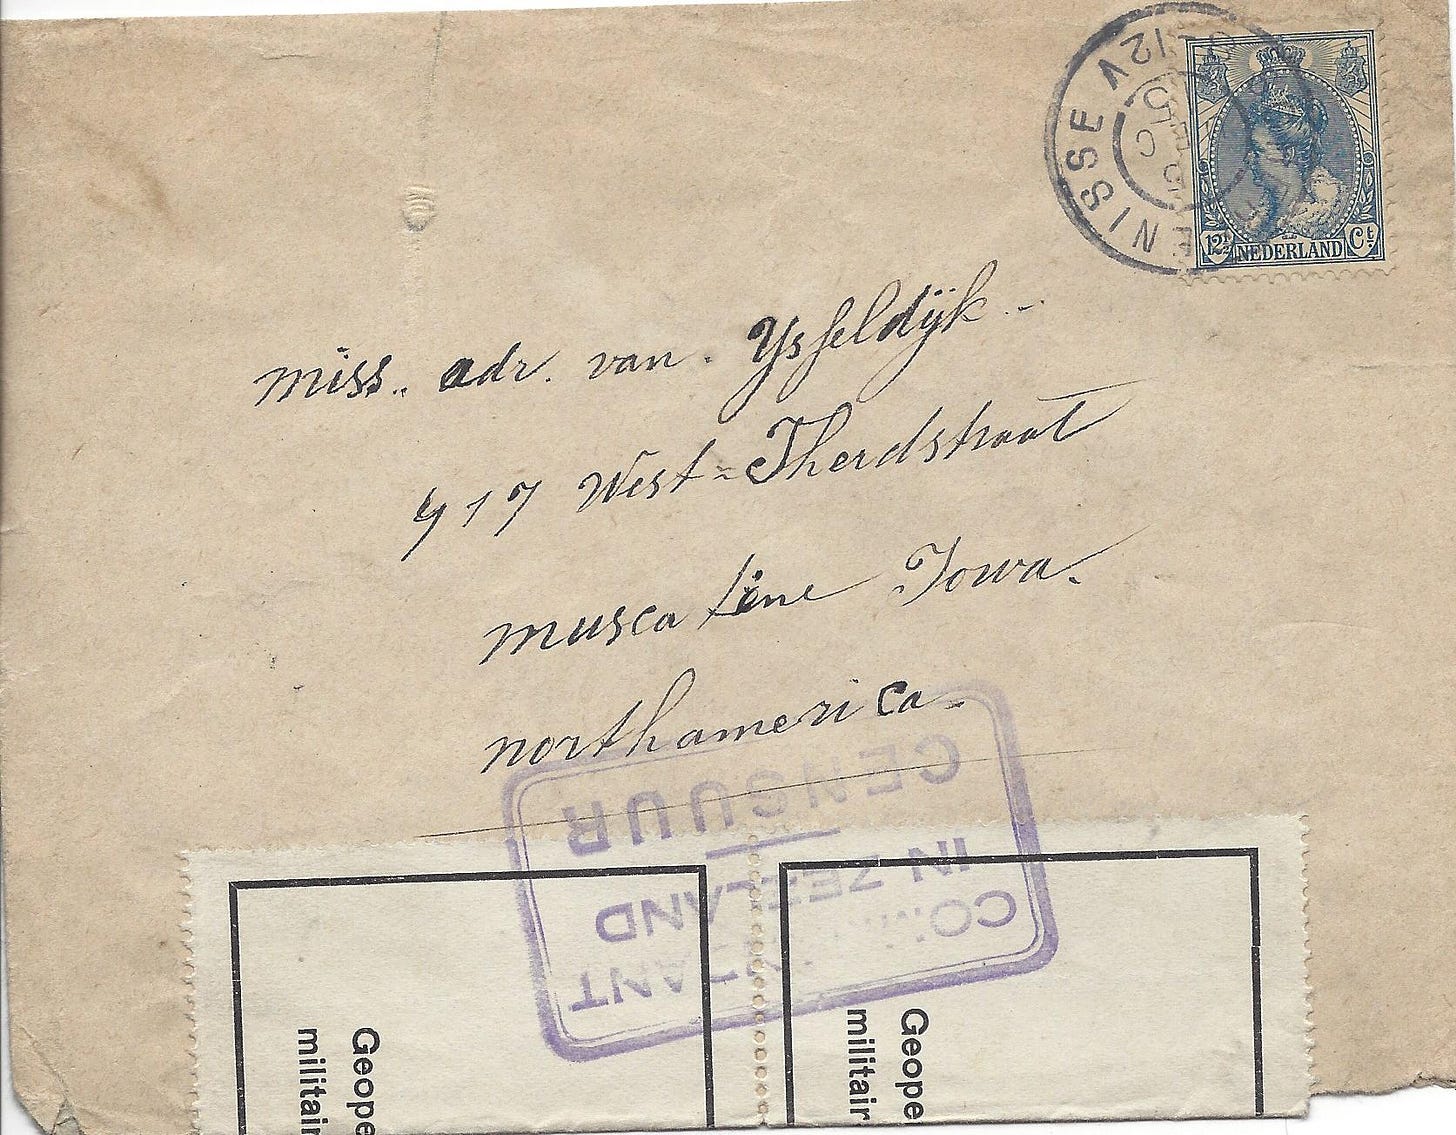 NISSE
12V
12½ NEDERLAND Ct
miss.. adr. van. Ysseldÿk -
417 West=Therdstraat
muscatine Iowa.
northamerica.
COMMANDANT
IN ZEELAND
CENSUUR
Geope
militair
Geope
militair